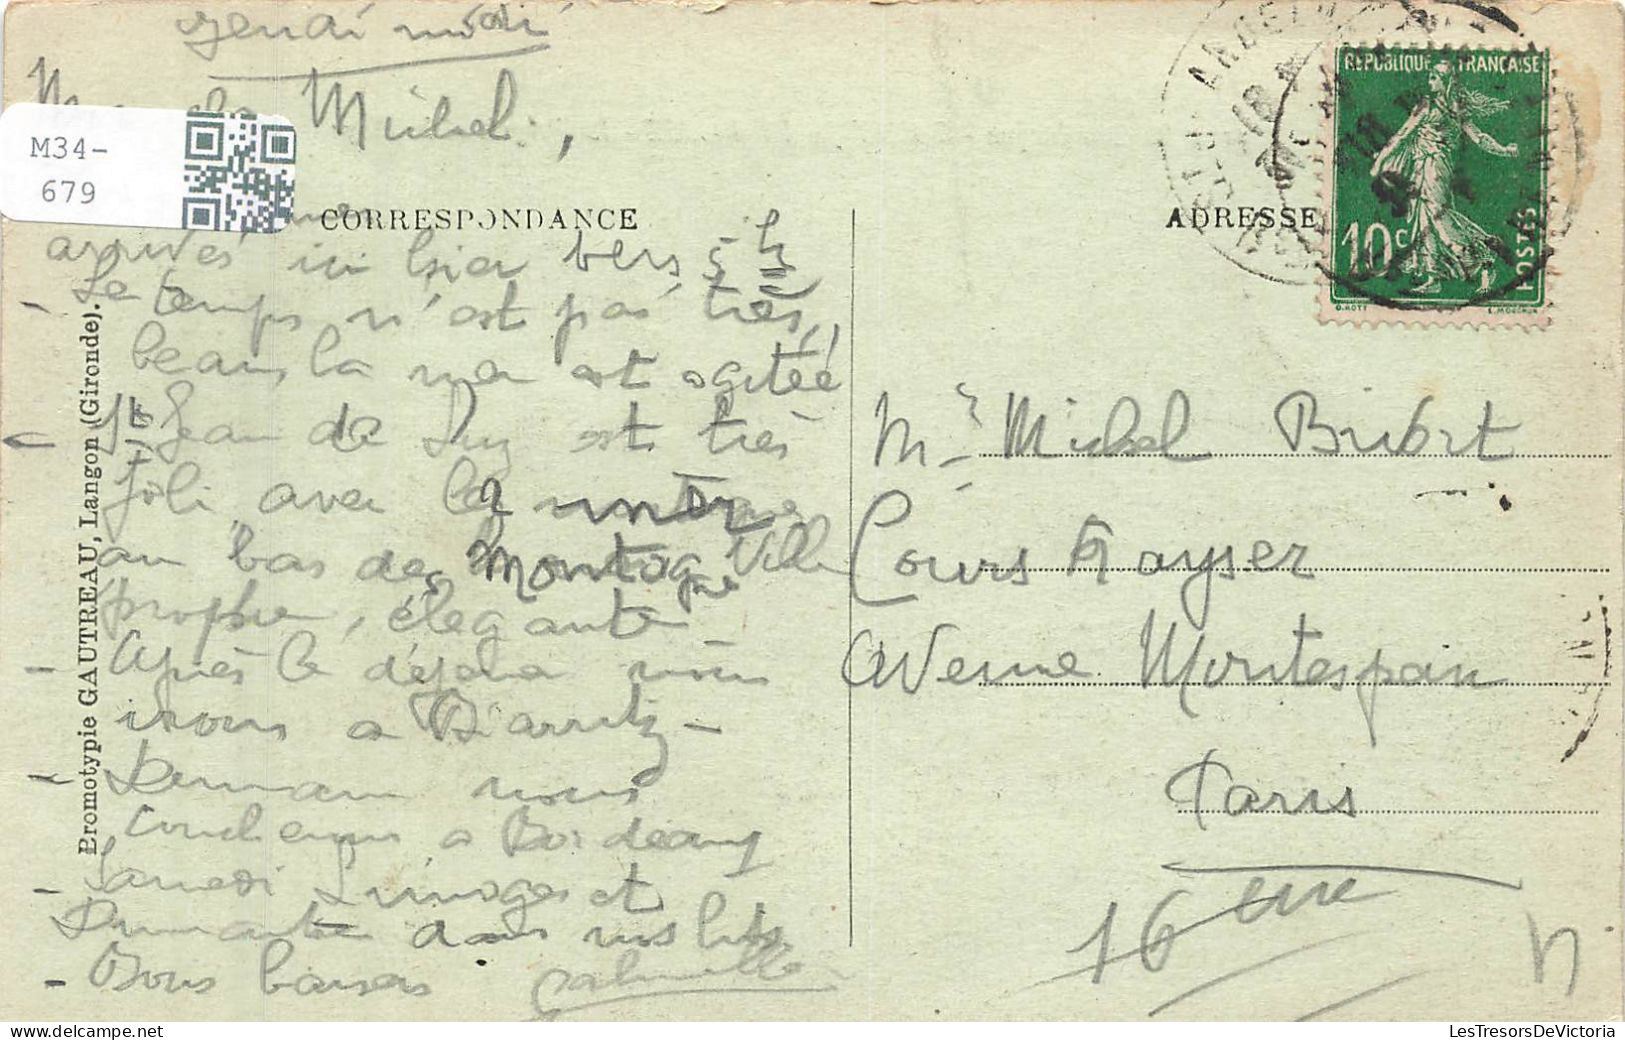 Michel,
M34-
679
CORRESPONDANCE
ADRESSE
arrivés ici hier vers 5 h
- Le temps n'est pas très
beau, la mer est agitée
- St Jean de Luz est très
joli avec la
au bas de Montagne Ville
propre, élégante -
- Après le déjeuner nous
irons a Biarritz -
- Demain nous
coucherons a Bordeaux
- Samedi Limoges et
Dimanche dans nos lits
- Bons baisers
Bromotypie GAUTREAU, Langon (Gironde).
REPUBLIQUE FRANÇAISE
10c
POSTES
O. ROTY
Mr Michel
Cours
Avenue Montespan
Paris
16 eme
LesTresorsDeVictoria